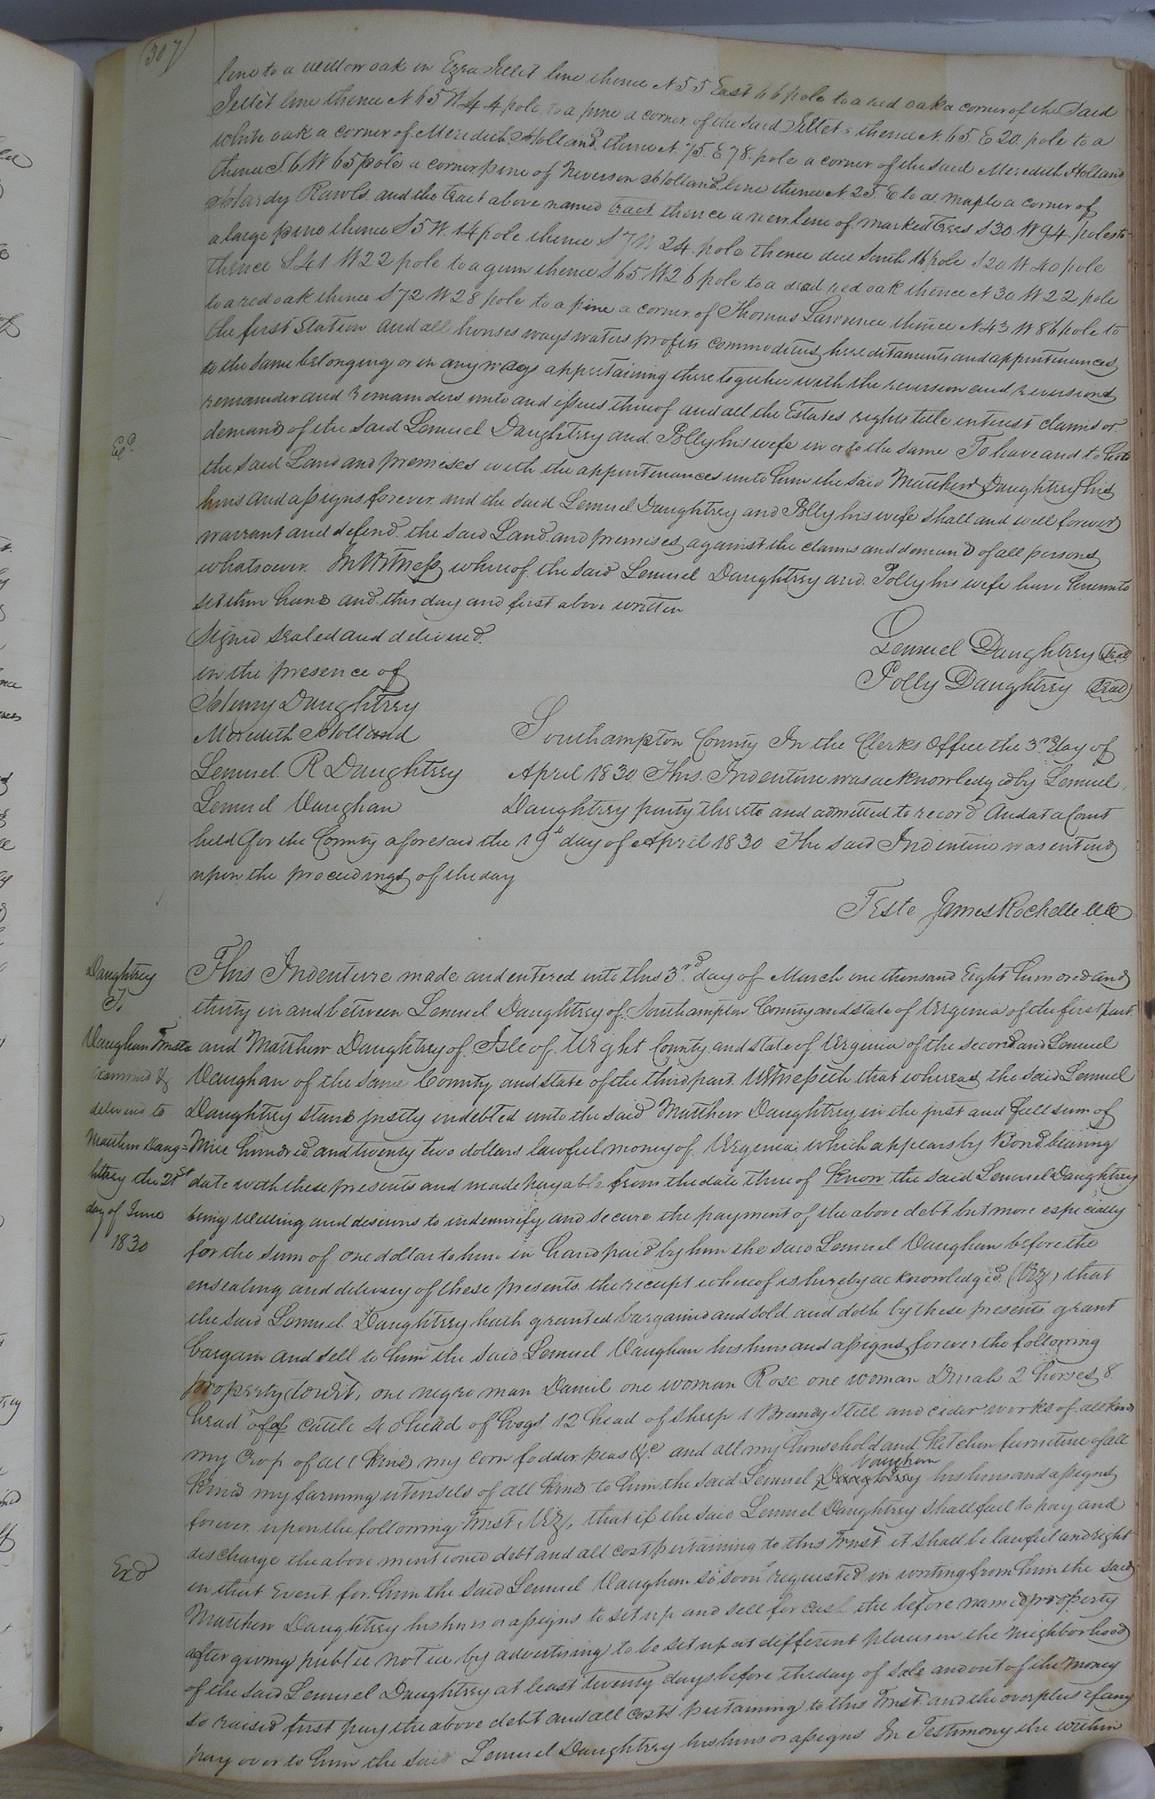 (307)
line to a willow oak in Ezra Jellet line thence N 55 East 66 pole to a red oak a corner of the said
Jellet line thence N 65 W 44 pole to a pine a corner of the said Jellets thence N. 65 E 20. pole to a
white oak a corner of Meredith Holland thence N 75. E 78. pole a corner of the said Meredith Holland
thence S 6 W 65 pole a corner pine of Neverson Holland line thence N 25. E to a maple a corner of
Hardy Rawls and the tract above named tract thence a new line of marked trees S 30 W 94 poles to
a large pine thence S 5 W. 14 pole thence S 7 W 24 pole thence due South 16 pole S 20 W 40 pole
thence S 41 W 22 pole to a gum thence S 65 W 26 pole to a dead red oak thence N 30 W 22 pole
to a red oak thence S 72 W 28 pole to a pine a corner of Thomas Lawrence thence N 43 W 86 pole to
the first Station and all houses ways waters profits commodities hereditaments and appurtenances
to the same belonging or in any ways appertaining there together with the reversion and reversions
remainder and remainders unto and issues thereof and all the Estates rights title interest claims or
demand of the said Lemuel Daughtrey and Polly his wife in or to the same To have and to hold
Exd.
the said Land and premises with the appurtenances unto him the said Matthew Daughtrey his
heirs and assigns forever and the said Lemuel Daughtrey and Polly his wife shall and will forever
warrant and defend the said Land and premises against the claims and demand of all persons
whatsoever. In Witness whereof the said Lemuel Daughtrey and Polly his wife have hereunto
set their hand and this day and first above written
Signed sealed and delivered
in the presence of
Lemuel Daughtrey (Seal)
Polly Daughtrey (Seal)
Henry Daughtrey
Meredith Holland
Lemuel R Daughtrey
Lemuel Vaughan
Southampton County In the Clerks Office the 3rd day of
April 1830 This Indenture was acknowledged by Lemuel
Daughtrey party thereto and admitted to record And at a Court
held for the County aforesaid the 19th day of April 1830 The said Indenture was entered
upon the proceedings of the day
Teste James Rochelle
Daughtrey
To
Vaughan Trustee
Examined &
delivered to
Matthew Daug=
htrey the 21st
day of June
1830
This Indenture made and entered into this 3rd day of March one thousand Eight hundred and
thirty in and between Lemuel Daughtrey of Southampton County and state of Virginia of the first part
and Matthew Daughtrey of Isle of Wight County and state of Virginia of the second and Lemuel
Vaughan of the same County and state of the third part. Witnesseth that whereas the said Lemuel
Daughtrey stand justly indebted unto the said Matthew Daughtrey in the just and full sum of
Nine hundred and twenty two dollars lawful money of Virginia which appears by Bond bearing
date with these presents and made payable from the date thereof Know the said Lemuel Daughtrey
being willing and desirous to indemnify and secure the payment of the above debt but more especially
for the sum of one dollar to him in hand paid by him the said Lemuel Vaughan before the
ensealing and delivery of these presents the receipt whereof is hereby acknowledged (Viz) that
the said Lemuel Daughtrey hath granted bargained and sold and doth by these presents grant
bargain and sell to him the said Lemuel Vaughan his heirs and assigns forever the following
property (towit) one negro man Daniel one woman Rose one woman Dinah 2 horses 8
head of of cattle 40 head of hogs 12 head of sheep 1 Brandy Still and cider works of all kind
my Crop of all kind my corn fodder peas &c. and all my household and kitchen furniture of all
Vaughan
kind my farming utensels of all kind to him the said Lemuel Daughtrey his heirs and assigns
forever upon the following Trust, Viz, that if the said Lemuel Daughtrey shall fail to pay and
discharge the above mentioned debt and all cost pertaining to this Trust it shall be lawful and right
Exd
in that Event for him the said Lemuel Vaughan so soon requested in writing from him the said
Matthew Daughtrey his heirs or assigns to set up and sell for cash the before named property
after giving public notice by advertising to be set up at different places in the neighborhood
of the said Lemuel Daughtrey at least twenty days before the day of sale and out of the money
so raised first pay the above debt and all costs pertaining to this Trust and the overplus if any
pay over to him the said Lemuel Daughtrey his heirs or assigns In Testimony the within